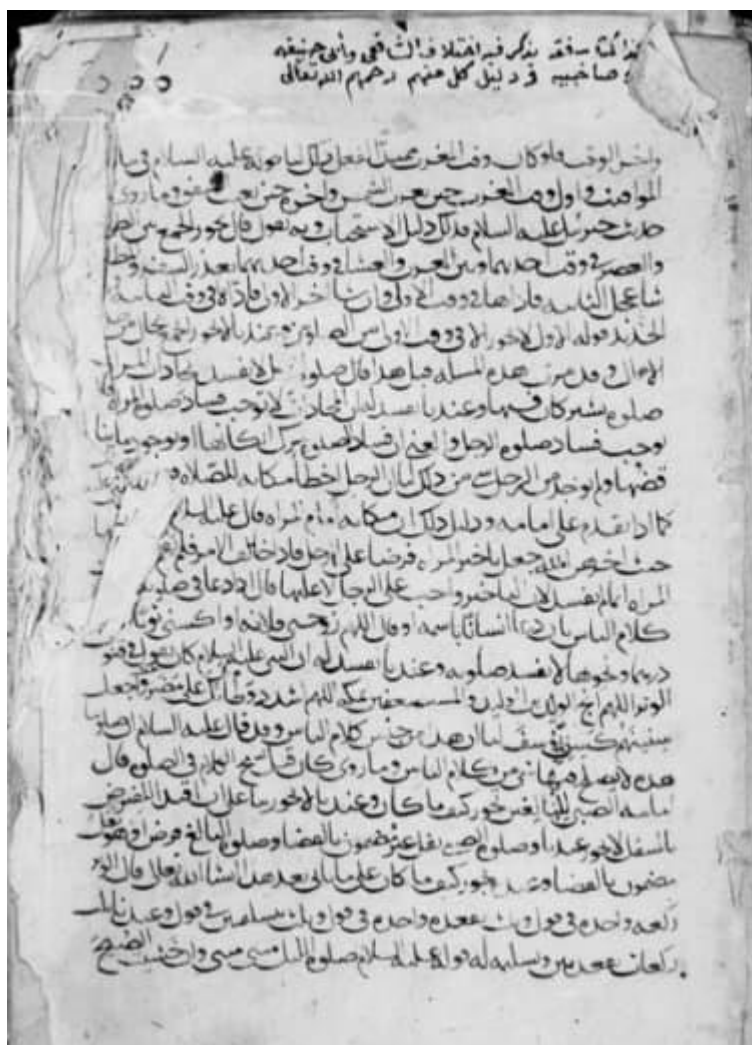 هذا كتاب فقه يذكر فيه اختلاف الشافعي وأبي حنيفة
صاحبيه ودليل كل منهم رحمهم الله تعالى
واخر الوقت فلو كان وقت المغرب ممتدا لفعل ذلك لنا قوله عليه السلام في
المواقيت واول وقت المغرب حين تغرب الشمس واخره حين يغيب الشفق وما روي
حديث جبرئيل عليه السلام فذلك دليل الاستحباب وبه نقول قال يجوز الجمع بين الظهر
والعصر في وقت احديهما وبين المغرب والعشا في وقت احديهما بعذر السفر
شا عجل الثانية فاداها في وقت الاولى وان شا اخر الاولى فاداها في وقت الثانية
قوله الاول لا يجوز الا في وقت الصلوتين وعندنا لا يجوز الجمع بحال من
الاحوال وقد مرت هذه المسئلة قبل هذا قال صلوة الرجل لا تفسد بمحاذات المراة
صلوة يشتركان فيها وعندنا تفسد له ان المحاذات لا توجب فساد صلوة المراة
توجب فساد صلوة الرجل والمعنى ان فساد الصلوة بترك اركانها او بوجود ما
قضها ولم يوجد من الرجل شي من ذلك لنا ان الرجل اخطا مكانه للصلاة
كما اذا تقدم على امامه ودليل ذلك ان مكانه امام المراة قال عليه السلام
حيث اخرهن الله جعل تاخير المراة فرضا على الرجل فاذا خالف الامر
المراة انما لم تفسد لان التاخير واجب على الرجال لا عليها قال اذا دعا في صلوته
كلام الناس بان دعا انسانا باسمه او قال اللهم زوجني فلانة او اكسني ثوبا
ونحوها لا تفسد صلوته وعندنا تفسد له ان النبي عليه السلام كان يقول في قنوت
الوتر اللهم انج الوليد بن الوليد والمستضعفين بمكة اللهم اشدد وطأتك على مضر واجعل
سنيهم كسني يوسف لنا ان هذا من جنس كلام الناس وقد قال عليه السلام ان صلوتنا
هذه لا يصلح فيها شي من كلام الناس وما روي كان قبل نسخ الكلام في الصلوة قال
امامة الصبي للبالغين يجوز كيف ما كان وعندنا لا يجوز بنا على ان اقتدا المفترض
بالمتنفل لا يجوز عندنا وصلوة الصبي نفل غير مضمون بالقضا وصلوة البالغ فرض او
مضمون بالقضا وعنده يجوز كيف ما كان على ما ياتي بعد هذا ان شا الله تعالى قال الوتر
ركعة واحدة في قول وثلث بقعدة واحدة في قول وثلث بتسليمتين في قول وعندنا
ركعات بقعدتين وتسليمة له قوله عليه السلام صلوة الليل مثنى مثنى وان خشيت الصبح